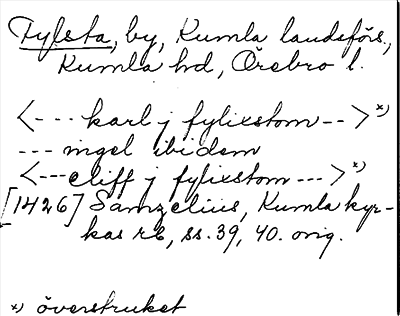 Fylsta, by, Kumla landsförs.,
Kumla hd, Örebro l.
<--- karl j fylixstom --> *)
--- ingel ibidem
<--- cliff j fylixstom ---> *)
[1426] Samzelius, Kumla kyr-
kas rb, ss. 39, 40. orig.
*) överstruket